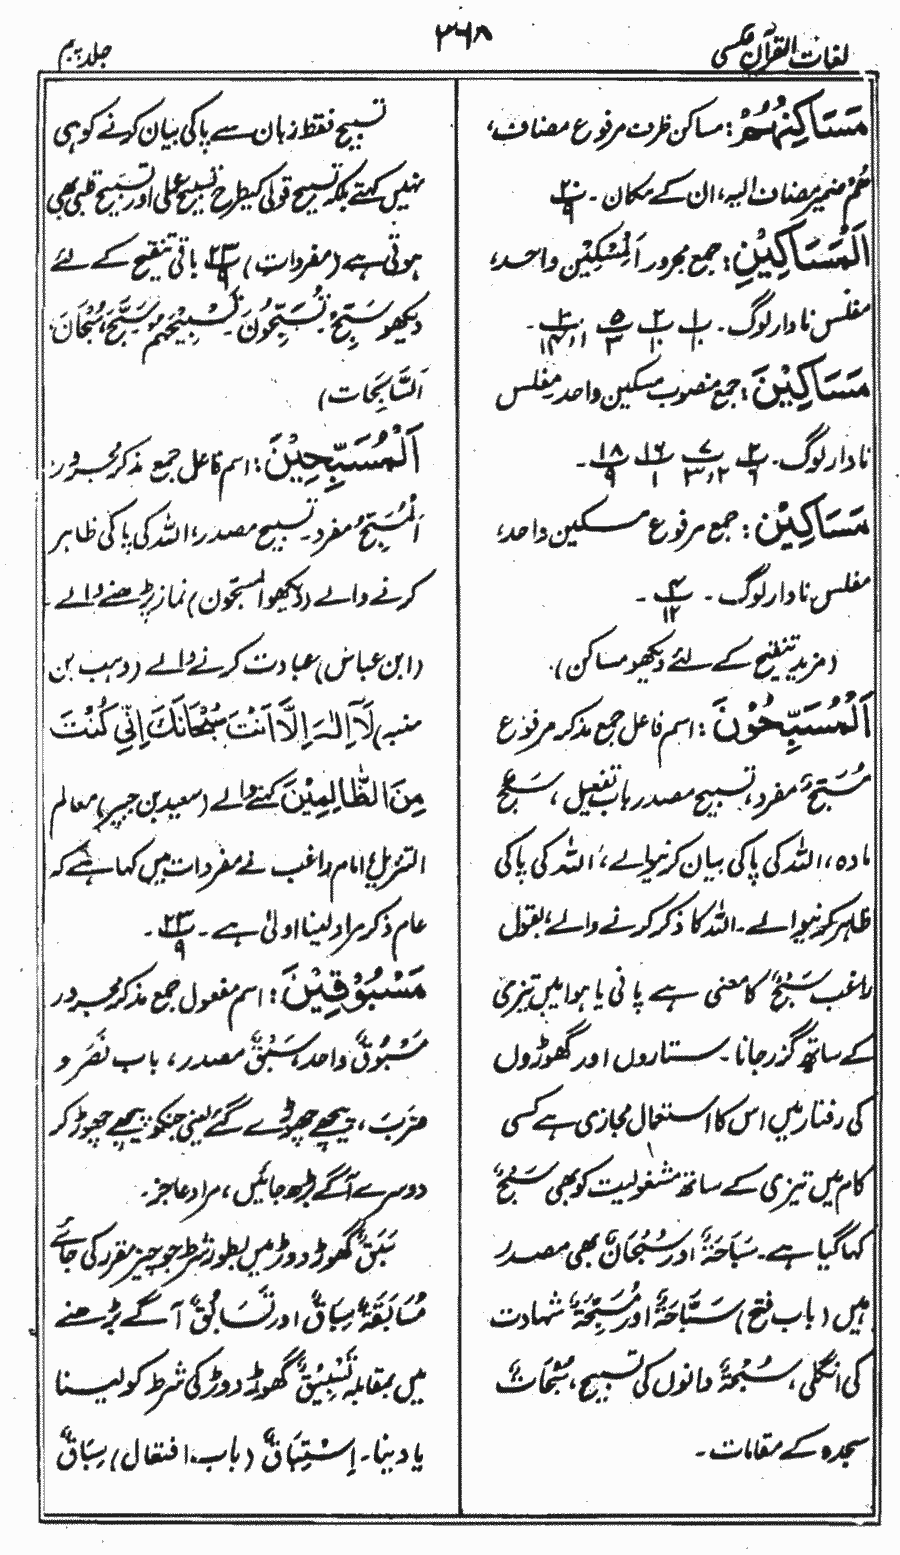 لغات القرآن عکسی
۳۶۸
جلد پنجم
مَسَاكِنُهُمْ: مساکن ظرف مرفوع مضاف،
هُمْ ضمیر مضاف الیہ، ان کے مکان۔ ۲۰/۹
اَلْمَسَاكِيْنِ: جمع مجرور اَلْمِسْكِيْنُ واحد،
مفلس نادار لوگ۔
مَسَاكِيْنَ: جمع منصوب مسکین واحد مفلس
نادار لوگ۔
مَسَاكِيْنَ: جمع مرفوع مسکین واحد،
مفلس نادار لوگ ۔ ۴/۱۲ ۔
(مزید تنقیح کے لئے دیکھو مساکن)۔
اَلْمُسَبِّحُوْنَ: اسم فاعل جمع مذکر مرفوع
مُسَبِّحٌ مفرد، تسبیح مصدر باب تفعیل، سَبْحٌ
مادہ، اللہ کی پاکی بیان کرنیوالے، اللہ کی پاکی
ظاہر کرنیوالے۔ اللہ کا ذکر کرنے والے، بقول
راغب سَبْحٌ کا معنی ہے پانی یا ہوا میں تیزی
کے ساتھ گزر جانا۔ ستاروں اور گھوڑوں
کی رفتار میں اس کا استعمال مجازی ہے کسی
کام میں تیزی کے ساتھ مشغولیت کو بھی سَبْحٌ
کہا گیا ہے۔ سَبَاحَةٌ اور سُبْحَانٌ بھی مصدر
ہیں (باب فتح) سَبَّاحَةٌ اور مُسَبِّحَةٌ شہادت
کی انگلی، سُبْحَةٌ دانوں کی تسبیح، سُبُحَاتٌ
سجدہ کے مقامات۔
تسبیح فقط زبان سے پاکی بیان کرنے کو ہی
نہیں کہتے بلکہ تسبیح قولی کیطرح تسبیح عملی اور تسبیح قلبی بھی
ہوتی ہے (مفردات) ۲۳/۹ باقی تنقیح کے لئے
دیکھو سَبِّحْ، تُسَبِّحُوْنَ۔ تَسْبِيْحَهُمْ، سَبَّحَ، سُبْحَانَ،
اَلسَّابِحَات)
اَلْمُسَبِّحِيْنَ: اسم فاعل جمع مذکر مجرور
اَلْمُسَبِّحُ مفرد۔ تسبیح مصدر، اللہ کی پاکی ظاہر
کرنے والے (دیکھو المسبحون) نماز پڑھنے والے
(ابن عباس) عبادت کرنے والے (وہب بن
منبہ) لَآ اِلٰہَ اِلَّا اَنْتَ سُبْحَانَكَ اِنِّي كُنْتُ
مِنَ الظَّالِمِيْنَ کہنے والے (سعید بن جبیر) معالم
التنزیل امام راغب نے مفردات میں کہا ہے کہ
عام ذکر مراد لینا اولیٰ ہے۔ ۲۳/۹ ۔
مَسْبُوْقِيْنَ: اسم مفعول جمع مذکر مجرور
مَسْبُوْقٌ واحد، سَبْقٌ مصدر، باب نَصَرَ و
ضَرَبَ، پیچھے چھوڑے گئے یعنی جنکو پیچھے چھوڑ کر
دوسرے آگے بڑھ جائیں، مراد عاجز۔
سَبَقٌ گھوڑ دوڑ میں بطور شرط جو چیز مقرر کی جائے
مُسَابَقَةٌ سِبَاقٌ اور تَسَابُقٌ آگے بڑھنے
میں مقابلہ تَسْبِيْقٌ گھوڑ دوڑ کی شرط کو لینا
یا دینا۔ اِسْتِبَاقٌ (باب افتعال) سِبَاقٌ